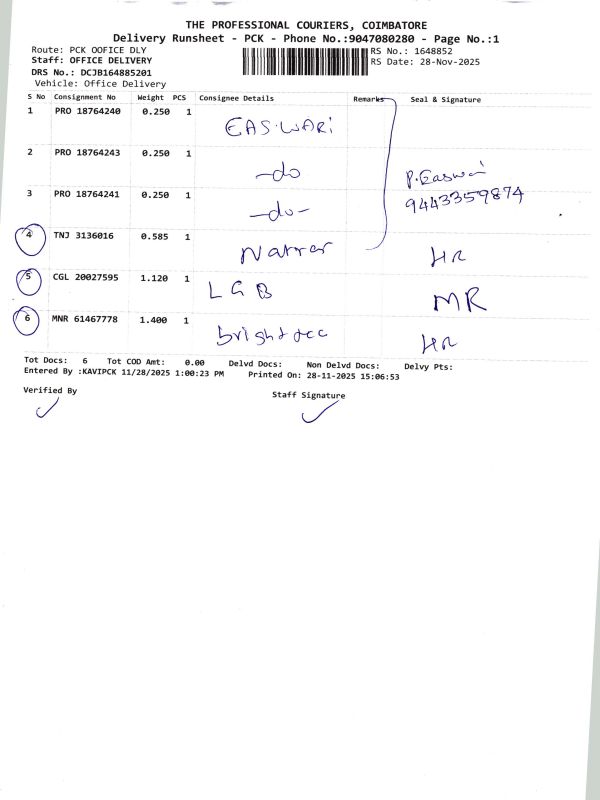 THE PROFESSIONAL COURIERS, COIMBATORE
Delivery Runsheet - PCK - Phone No.:9047080280 - Page No.:1
Route: PCK OOFICE DLY RS No.: 1648852
Staff: OFFICE DELIVERY RS Date: 28-Nov-2025
DRS No.: DCJB164885201
Vehicle: Office Delivery
S No Consignment No Weight PCS Consignee Details Remarks Seal & Signature
1 PRO 18764240 0.250 1 EASWARI
2 PRO 18764243 0.250 1 -do P.Easwari
3 PRO 18764241 0.250 1 -do- 9443359874
4 TNJ 3136016 0.585 1 HR
5 CGL 20027595 1.120 1 LGB MR
6 MNR 61467778 1.400 1 HR
Tot Docs: 6 Tot COD Amt: 0.00 Delvd Docs: Non Delvd Docs: Delvy Pts:
Entered By :KAVIPCK 11/28/2025 1:00:23 PM Printed On: 28-11-2025 15:06:53
Verified By Staff Signature